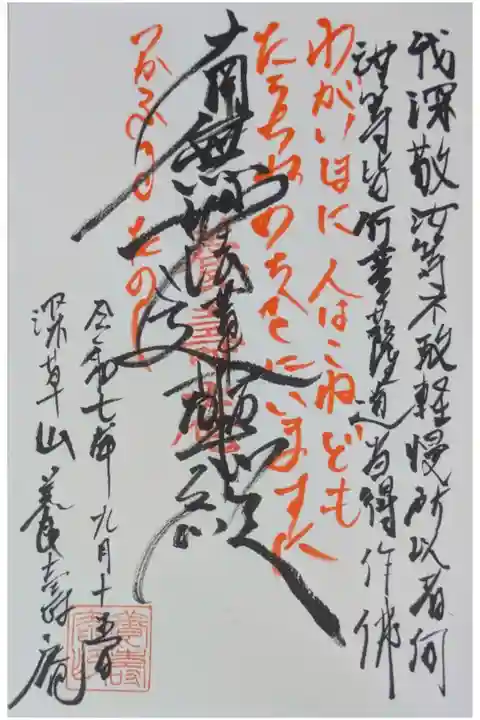 我深敬汝等不敢軽慢所以者何
汝等皆行菩薩道当得作佛
わがいほに 人はこねども
たらちねのちちとはにいますに
南無妙法蓮華経
令和七年九月十五日
深草山 養壽庵